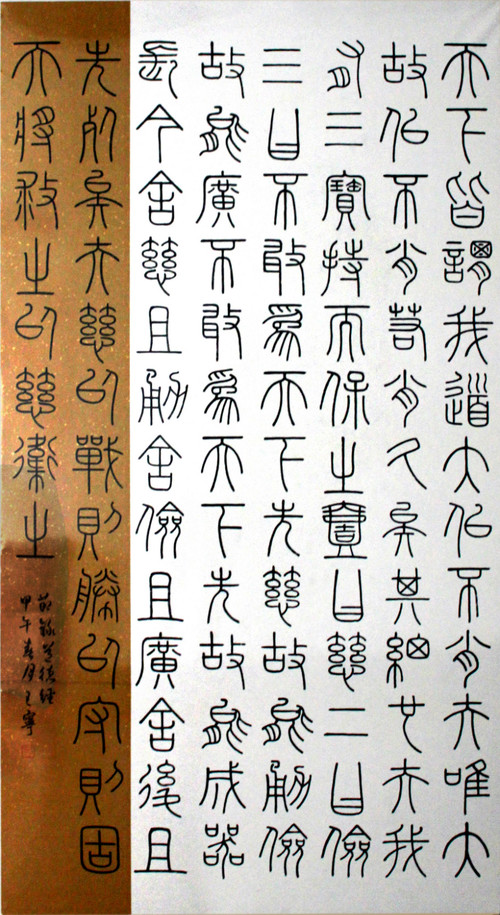 天下皆謂我道大似不肖夫唯大
故似不肖若肖久矣其細也夫我
有三寶持而保之壹曰慈二曰儉
三曰不敢為天下先慈故能勇儉
故能廣不敢為天下先故能成器
長今舍慈且勇舍儉且廣舍後且
先死矣夫慈以戰則勝以守則固
天將救之以慈衛之
節錄道德經
甲午春月王寧